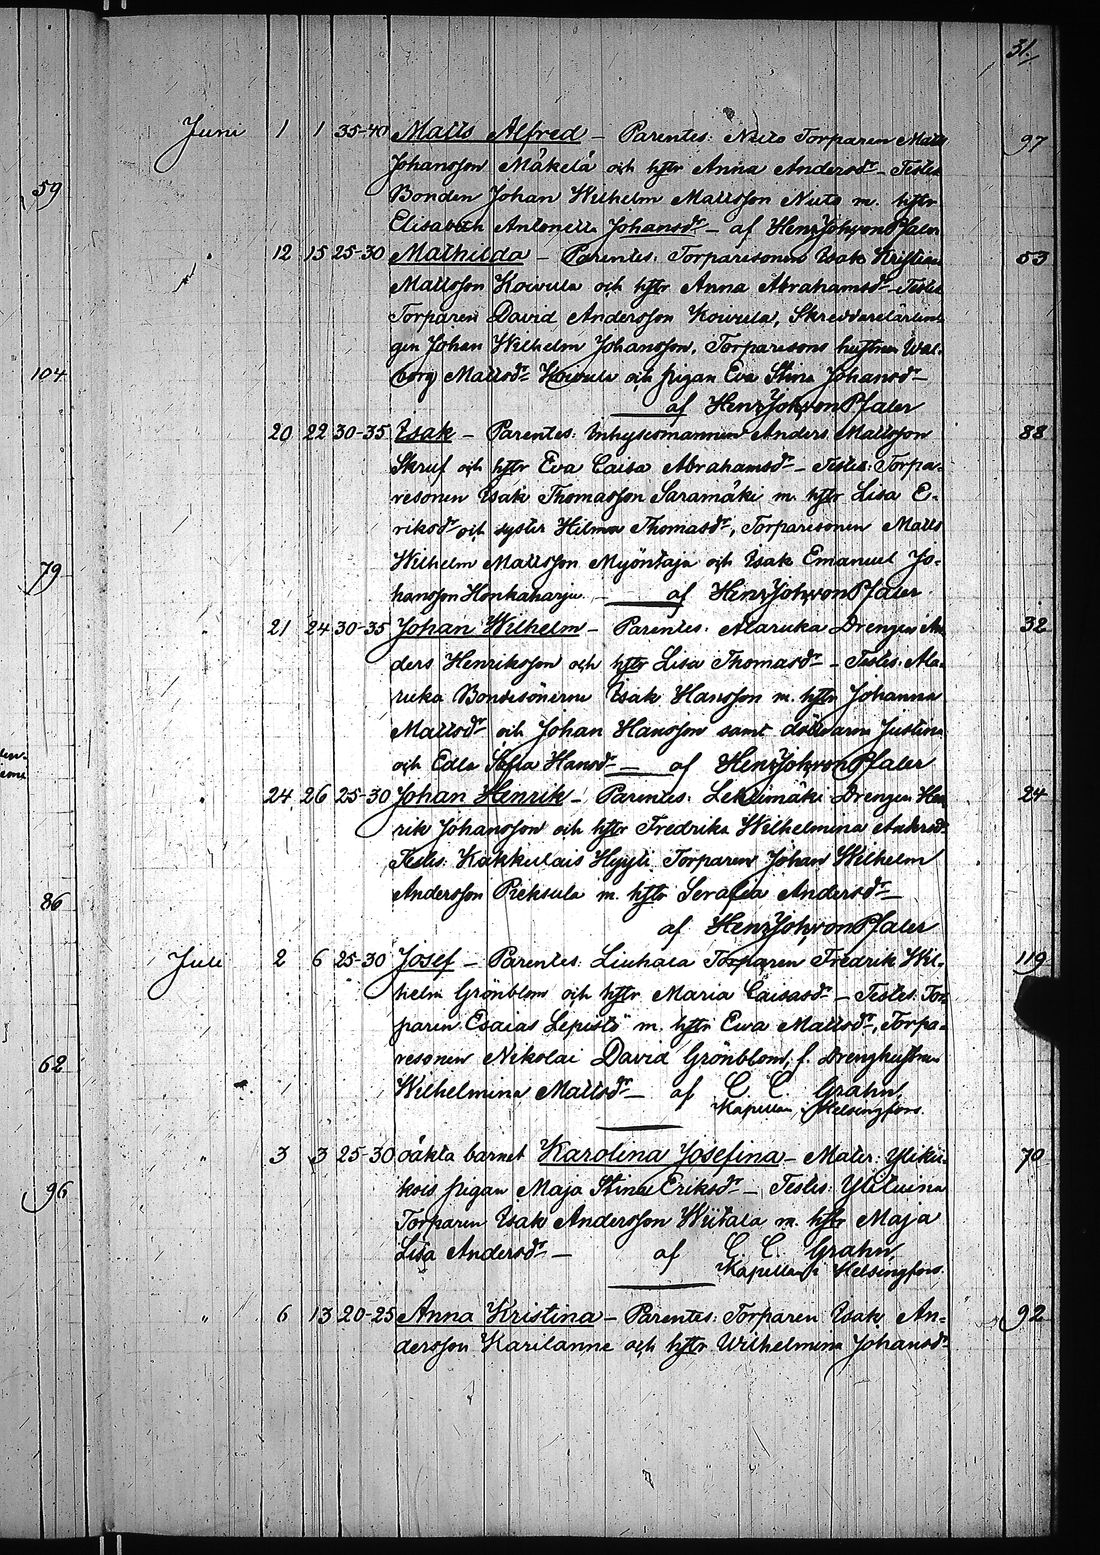 31.
Juni 1 1 35-40 Matts Alfred - Parentes: Niulo Torparen Matts 97
Johansson Mäkelä och hstr Anna Andersdr - Testes
Bonden Johan Wilhelm Mattsson Niuto m. hstr
59
Elisabeth Antonetta Johansdr - af Henr Joh von Pfaler
12 15 25-30 Mathilda - Parentes: Torparesonen Isak Kristian 53
Mattsson Koivula och hstr Anna Abrahamsdr - Testes
Torparen David Andersson Koivula, Skreddarelärlin-
gen Johan Wilhelm Johansson, Torparesons hustrun Wal-
104
borg Mattsdr Koivula och pigan Eva Stina Johansdr -
af Henr Joh von Pfaler
20 22 30-35 Isak - Parentes: Inhysesmannen Anders Mattsson 88
Skruf och hstr Eva Caisa Abrahamsdr - Testes: Torpa-
resonen Isak Thomasson Saramäki m. hstr Lisa E-
riksdr och syster Hilma Thomasdr, Torparesonen Matts
Wilhelm Mattsson Myöntaja och Isak Emanuel Jo-
79
hansson Honkaharju - af Henr Joh von Pfaler.
21 24 30-35 Johan Wilhelm - Parentes: Alaruka Drengen An 32
ders Henriksson och hstr Lisa Thomasdr - Testes: Ala-
ruka Bondesönerne Isak Hansson m. hstr Johanna
Mattsdr och Johan Hansson samt döttrarna Justina
och Edla Sofia Hansdr - af Henr Joh von Pfaler
24 26 25-30 Johan Henrik - Parentes: Lekkimäki Drengen Hen 24
rik Johansson och hstr Fredrika Wilhelmina Andersdr
Testes: Kakkulais Hyyti Torparen Johan Wilhelm
Andersson Pieksula m. hstr Serafia Andersdr -
86
af Henr Joh von Pfaler
Juli 2 6 25-30 Josef - Parentes: Liuhala Torparen Fredrik Wil- 119
helm Grönblom och hstr Maria Caisasdr - Testes: Tor-
paren Esaias Lepistö m. hstr Ewa Mattsdr, Torpa-
resonen Nikolai David Grönblom, f. Drenghustrun
62
Wilhelmina Mattsdr - af C. C. Grahn,
Kapellan i Helsingfors.
" 3 3 25-30 oäkta barnet Karolina Josefina - Mater: Ylikii- 70
kois pigan Maja Stina Eriksdr - Testes: Ylituina
96
Torparen Isak Andersson Wiitala m. hstr Maja
Lisa Andersdr - af C. C. Grahn,
Kapellan i Helsingfors.
" 6 13 20-25 Anna Kristina - Parentes: Torparen Isak An- 92
dersson Karilanne och hstr Wilhelmina Johansdr